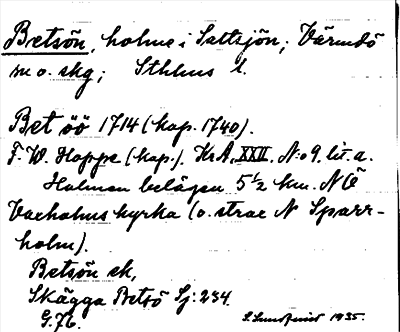 Betsön, holme i Saltsjön; Värmdö
m o. skg; Sthlms l.
Bet öö 1714 (kop. 1740).
F. W. Hoppe (kop.). KrA, XXII, N:o 9, lit. a.
Holmen belägen 5 1/2 km. NÖ
Vaxholms kyrka (o. strax N Sparr-
holm).
Betsön ek,
Skägga Betsö Sj: 234.
1935.